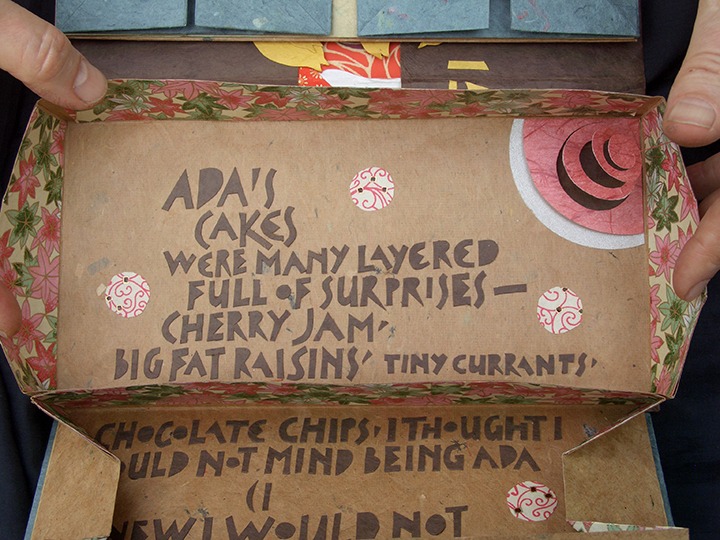 ADA'S
CAKES
WERE MANY LAYERED
FULL OF SURPRISES —
CHERRY JAM,
BIG FAT RAISINS, TINY CURRANTS,
CHOCOLATE CHIPS, I THOUGHT I
NOT MIND BEING ADA
(I
I WOULD NOT